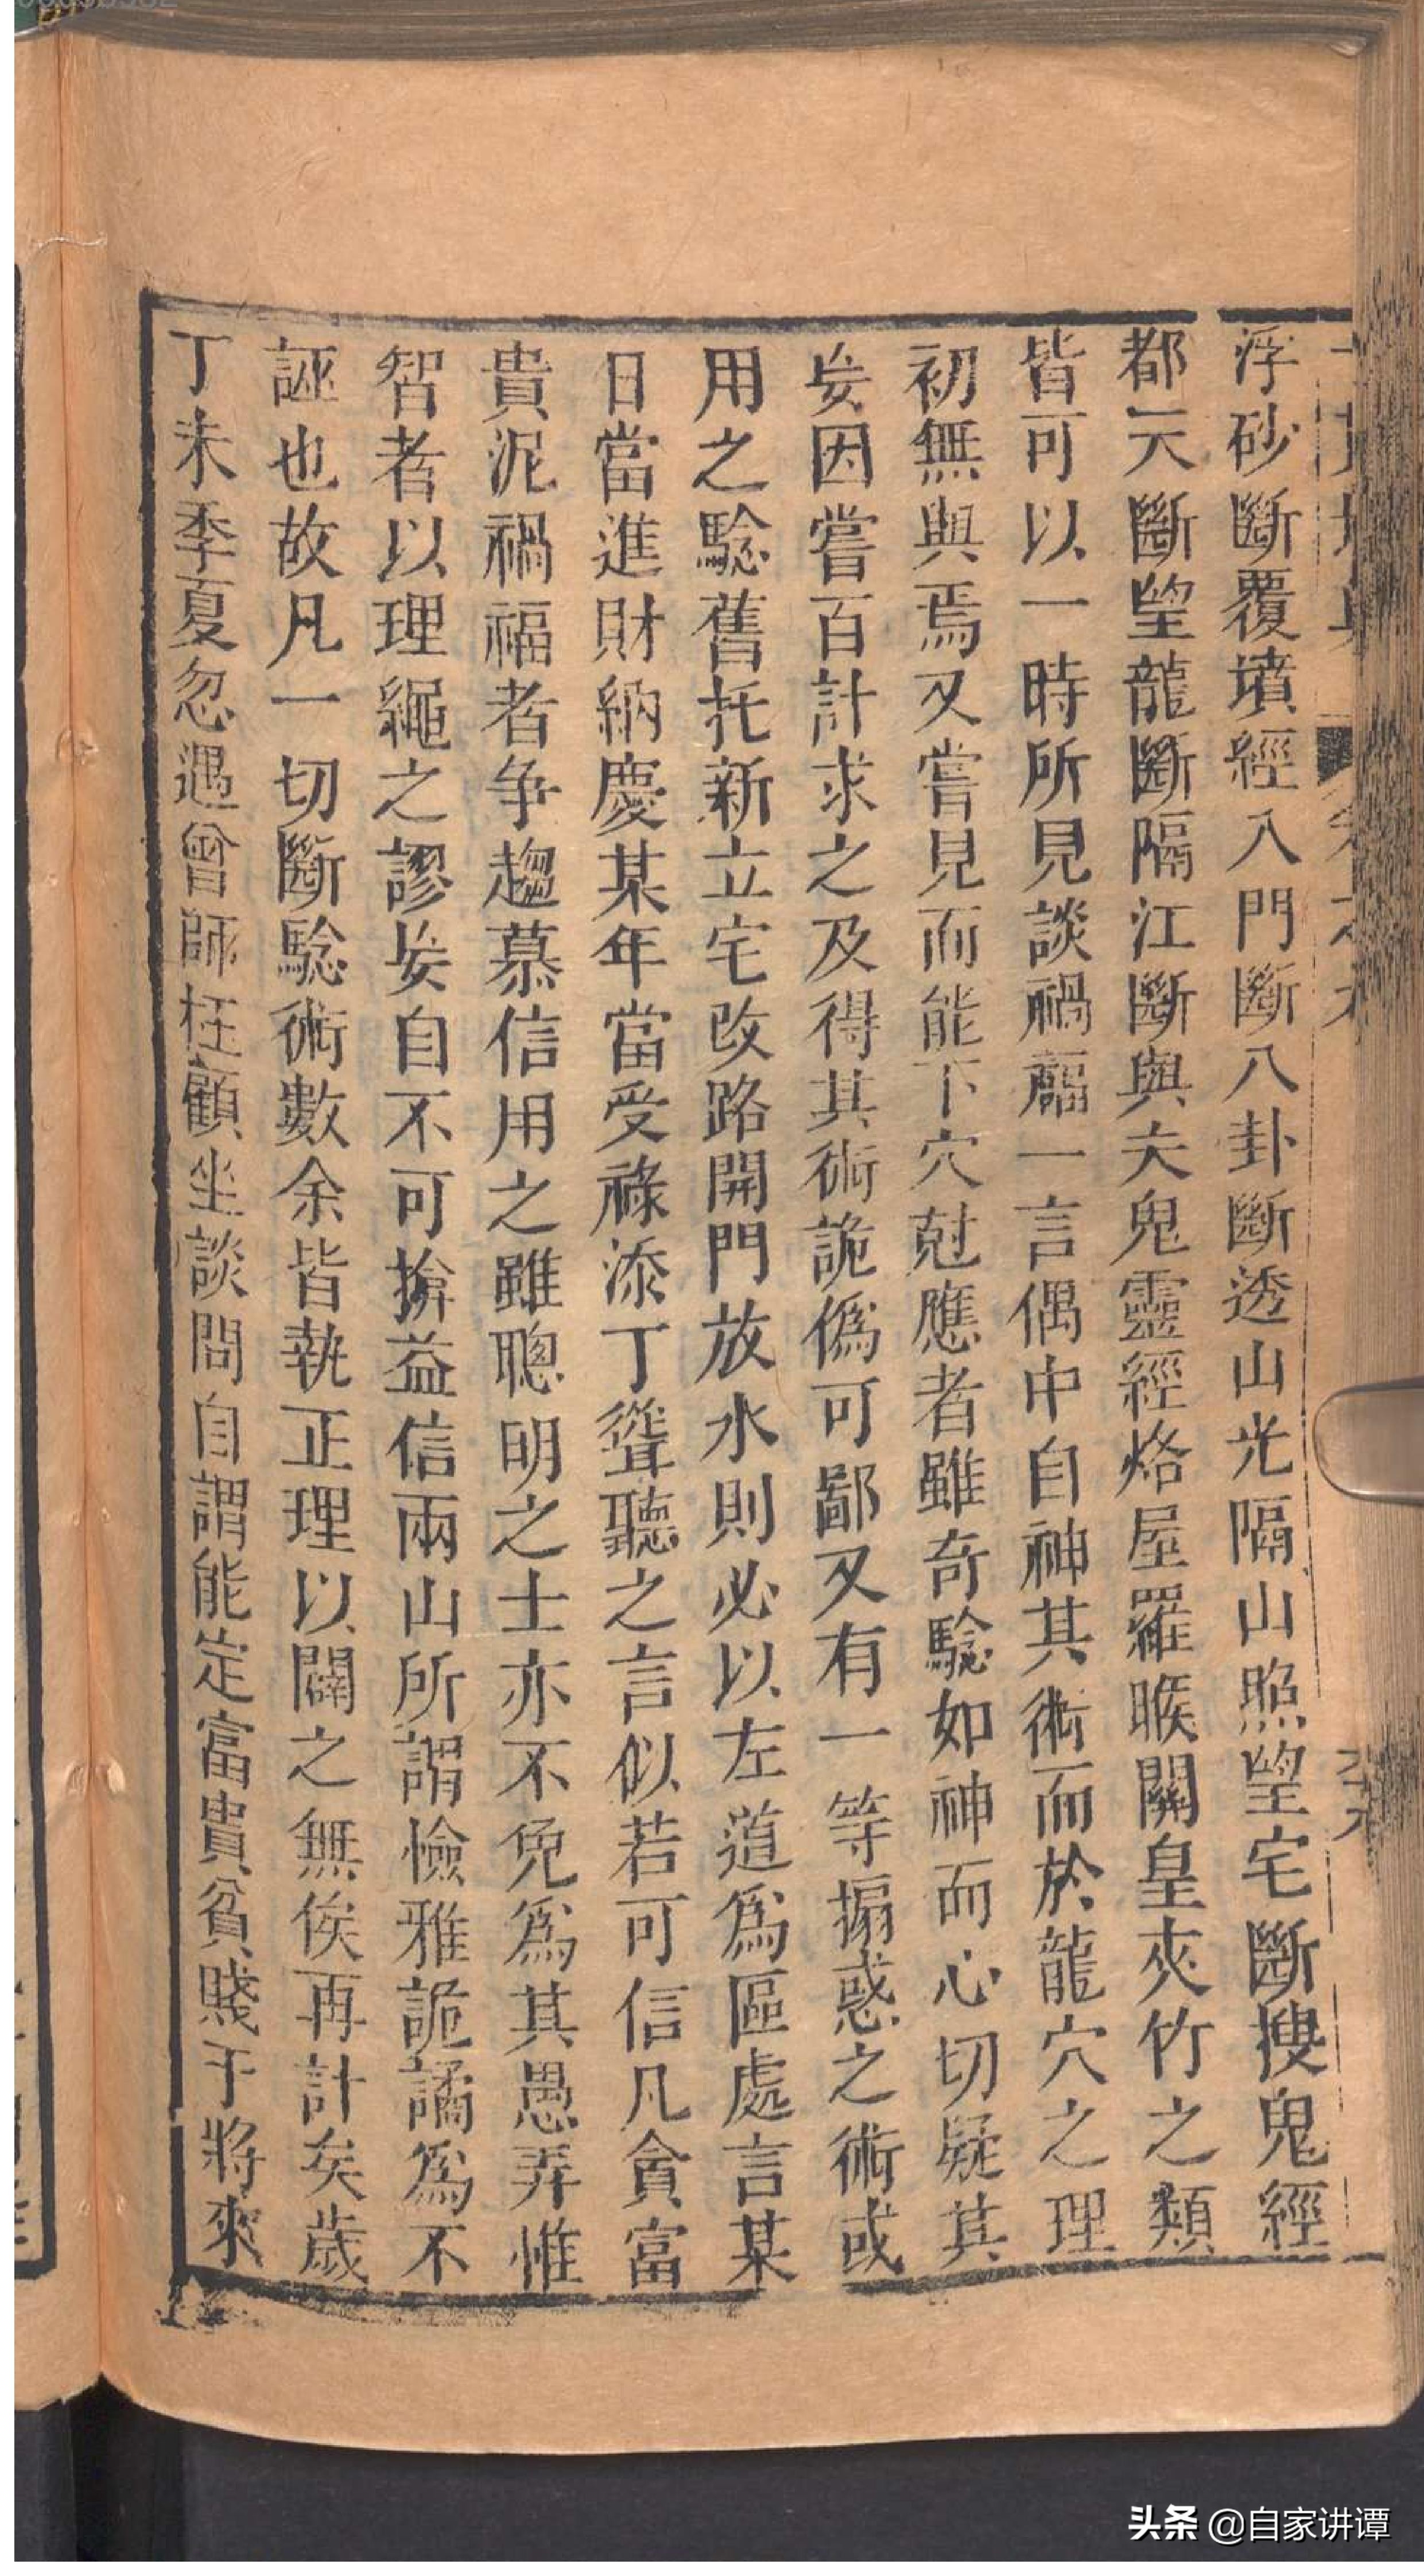 浮砂斷覆墳經入門斷八卦斷透山光隔山照望宅斷搜鬼經
都天斷望龍斷隔江斷與夫鬼靈經烙屋羅睺關皇夾竹之類
皆可以一時所見談禍福一言偶中自神其術而於龍穴之理
初無與焉又嘗見而能下穴尅應者雖奇騐如神而心切疑其
妄因嘗百計求之及得其術詭偽可鄙又有一等搧惑之術或
用之騐舊托新立宅改路開門放水則必以左道為區處言某
日當進財納慶某年當受祿添丁聳聽之言似若可信凡貪富
貴泥禍福者争趨慕信用之雖聰明之士亦不免為其愚弄惟
智者以理繩之謬妄自不可揜益信兩山所謂憸雅詭譎為不
誣也故凡一切斷騐術數余皆執正理以闢之無俟再計矣歲
丁未季夏忽遇曾師枉顧坐談間自謂能定富貴貧賤于將來
头条 @自家讲谭